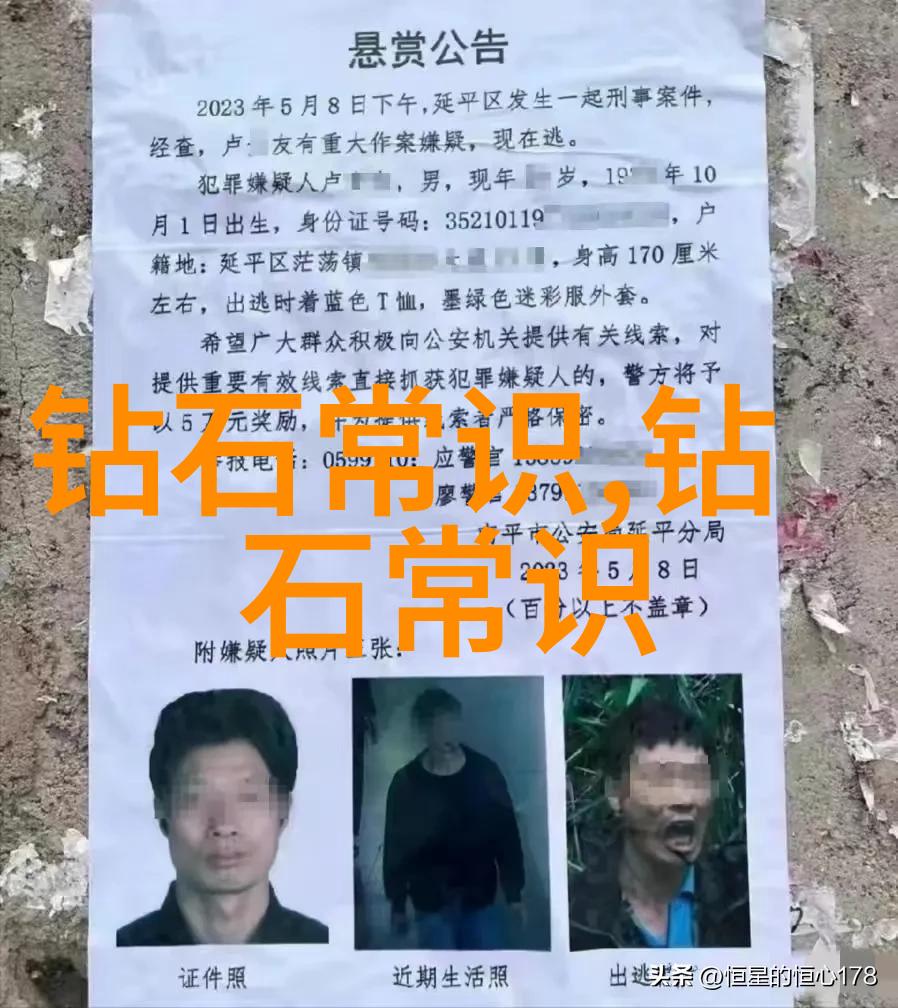 悬赏公告
2023年5月8日下午,延平区发生一起刑事案件,
经查,卢 友有重大作案嫌疑,现在逃。
犯罪嫌疑人卢 ,男,现年 岁,19 年10
月1日出生,身份证号码:35210119 ,户
籍地:延平区茫荡镇 ,身高170厘米
左右,出逃时着蓝色T恤,墨绿色迷彩服外套。
希望广大群众积极向公安机关提供有关线索,对
提供重要有效线索直接抓获犯罪嫌疑人的,警方将予
以5万元奖励, 严格保密。
钻石常识,钻
石常识
电话:0599 10:应警官
廖警官 379
南平市公安局延平分局
2023年5月8日
(百份以上不盖章)
附嫌疑人照片三张:
证件照
近期生活照
出逃
头条 @恒星的恒心178